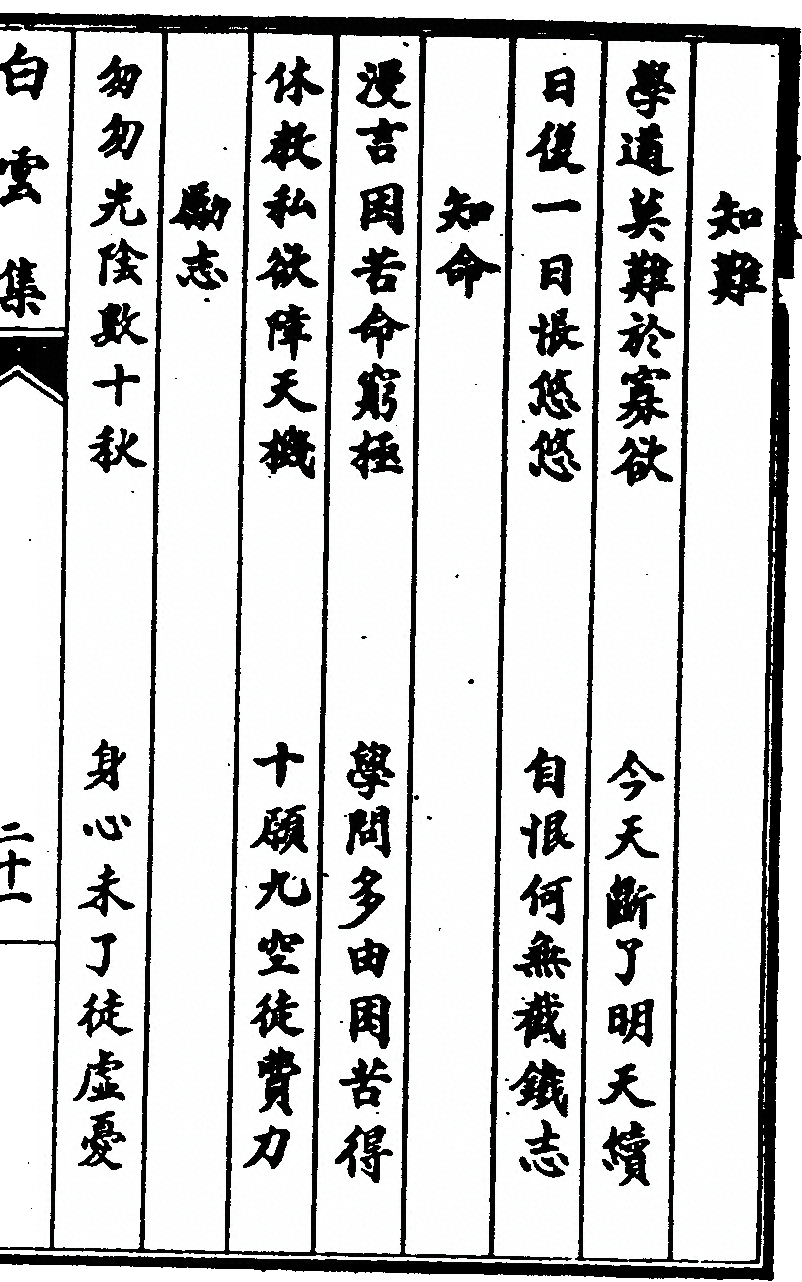 知難
學道莫難於寡欲 今天斷了明天續
日復一日悵悠悠 自恨何無截鐵志
知命
漫言困苦命窮極 學問多由困苦得
休教私欲障天機 十願九空徒費力
勵志
匆匆光陰數十秋 身心未了徒虛憂
白雲集
二十一